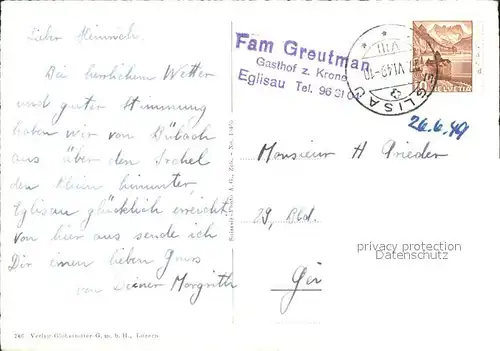 Lieber Heinrich.
Bei herrlichem Wetter
und guter Stimmung
haben wir von Bülach
aus über den Irchel
den Rhein hinunter,
Eglisau glücklich erreicht.
Von hier aus sende ich
Dir einen lieben Gruss
von Deiner Margrith
246 Verlag Globetrotter G. m. b. H., Luzern
Fam Greutman
Gasthof z. Krone
Eglisau Tel. 96 31 04
EGLISAU
VI.49
HELVETIA
26.6.49
Monsieur H Prieder
29, Bld.
privacy protection
DATENSCHUTZ